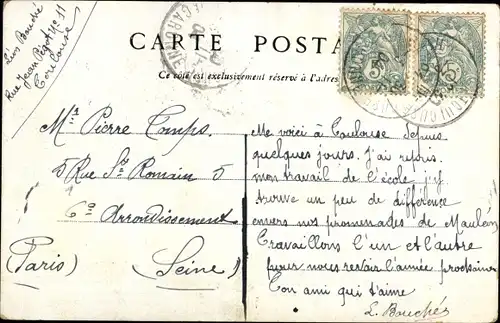 Léis Bouché
Rue Jean Pigot No 11
Toulouse
CARTE POSTA
Ce côté est exclusivement réservé à l'adres
5
5
Mr Pierre Comps.
5 Rue St Romain 5
6e Arrondissement
(Paris) (Seine)
Me voici à Toulouse depuis
quelques jours. J'ai repris
mon travail de l'école j'y
trouve un peu de différence
envers nos promenades de Mauléon
Travaillons l'un et l'autre
pour nous revoir l'année prochaine
Ton ami qui t'aime
L. Bouchés